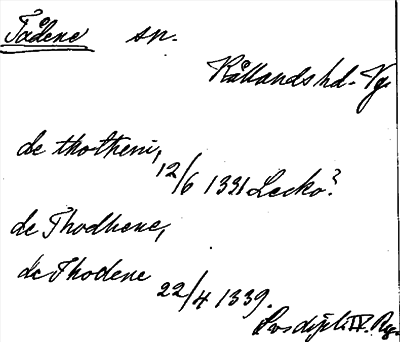 Tådene sn.
Kållands hd. Vg.
de thotheni,
12/6 1391 Lecko?
de Thodhene,
de Thodene
22/4 1339.